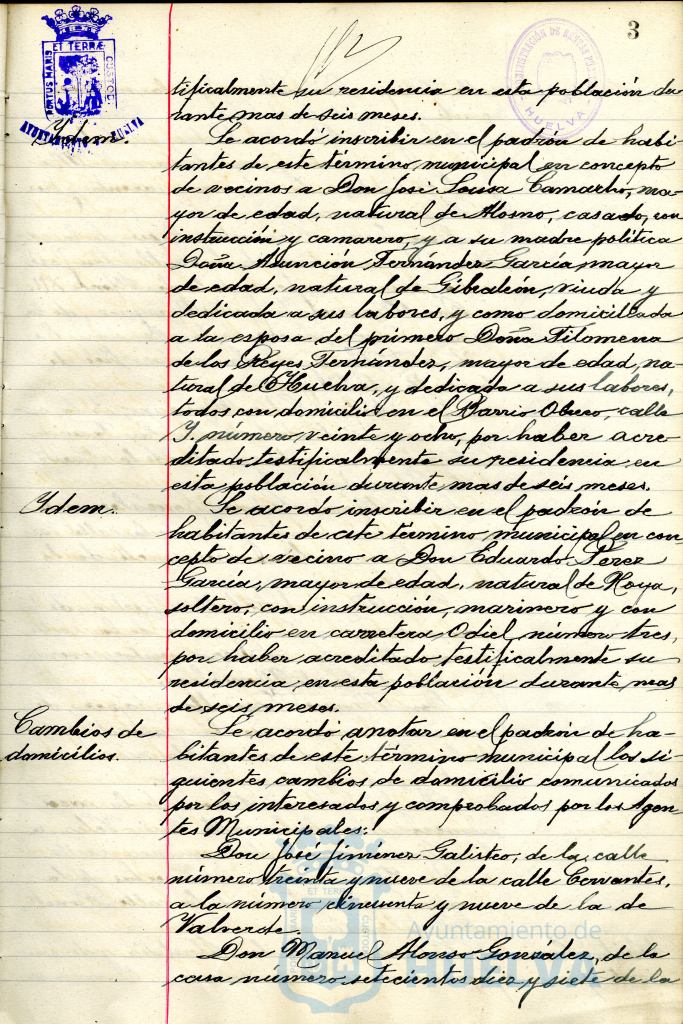 3
PORTUS MARIS
ET TERRÆ
CUSTODIA
AYUNTAMIENTO HUELVA
HUELVA
tificalmente su residencia en esta población du-
rante mas de seis meses.
Ydem.
Se acordó inscribir en el padrón de habi-
tantes de este término municipal en concepto
de vecinos a Don José Sousa Camacho, ma-
yor de edad, natural de Alosno, casado, con
instrucción y camarero, y a su madre política
Doña Asunción Fernández García, mayor
de edad, natural de Gibraleón, viuda y
dedicada a sus labores, y como domiciliada
a la esposa del primero Doña Filomena
de los Reyes Fernández, mayor de edad, na-
tural de Huelva, y dedicada a sus labores,
todos con domicilio en el Barrio Obrero, calle
Y. número veinte y ocho, por haber acre-
ditado testificalmente su residencia en
esta población durante mas de seis meses.
Ydem.
Se acordó inscribir en el padrón de
habitantes de este término municipal en con-
cepto de vecino a Don Eduardo Pérez
García, mayor de edad, natural de Moya,
soltero, con instrucción, marinero y con
domicilio en carretera Odiel, número tres,
por haber acreditado testificalmente su
residencia en esta población durante mas
de seis meses.
Cambios de
domicilios.
Se acordó anotar en el padrón de ha-
bitantes de este término municipal los si-
guientes cambios de domicilio comunicados
por los interesados y comprobados por los Agen-
tes Municipales:
Don José Jiménez Galisteo, de la calle
número treinta y nueve de la calle Cervantes,
a la número cincuenta y nueve de la de
Valverde.
Don Manuel Alonso González, de la
casa número setecientos diez y siete de la
Ayuntamiento de
HUELVA